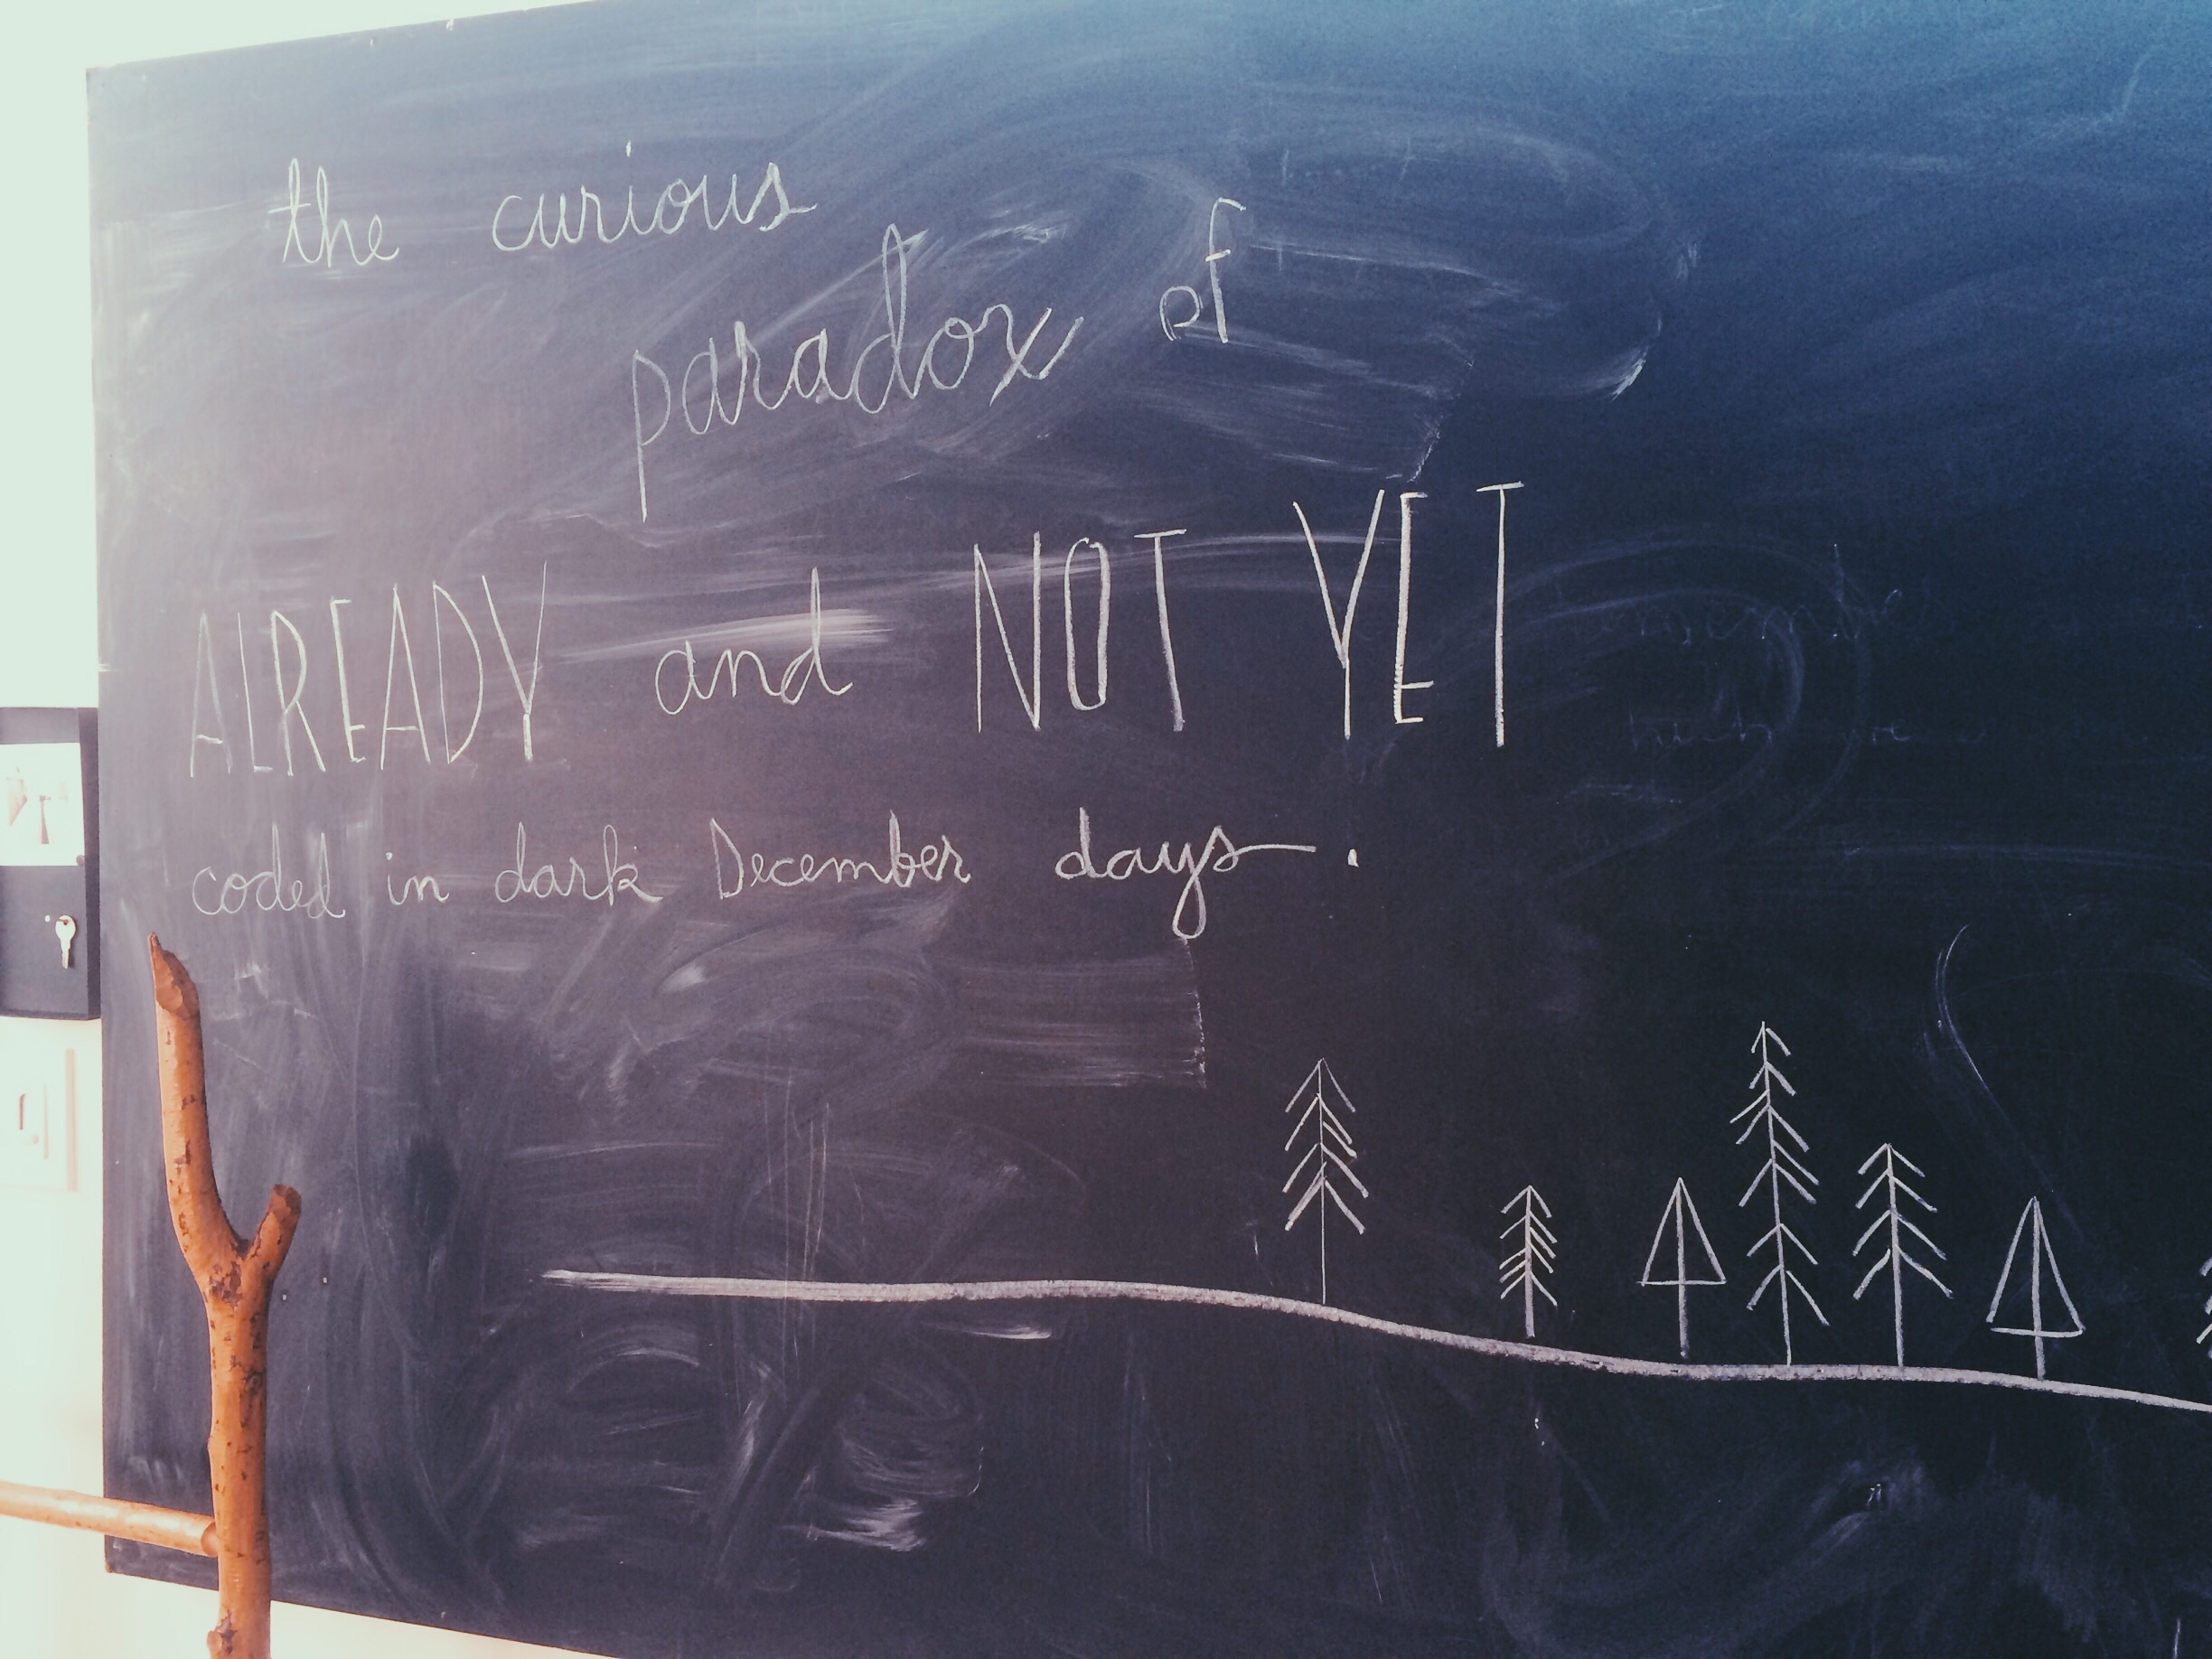 the curious
paradox of
ALREADY and NOT YET
coded in dark December days.